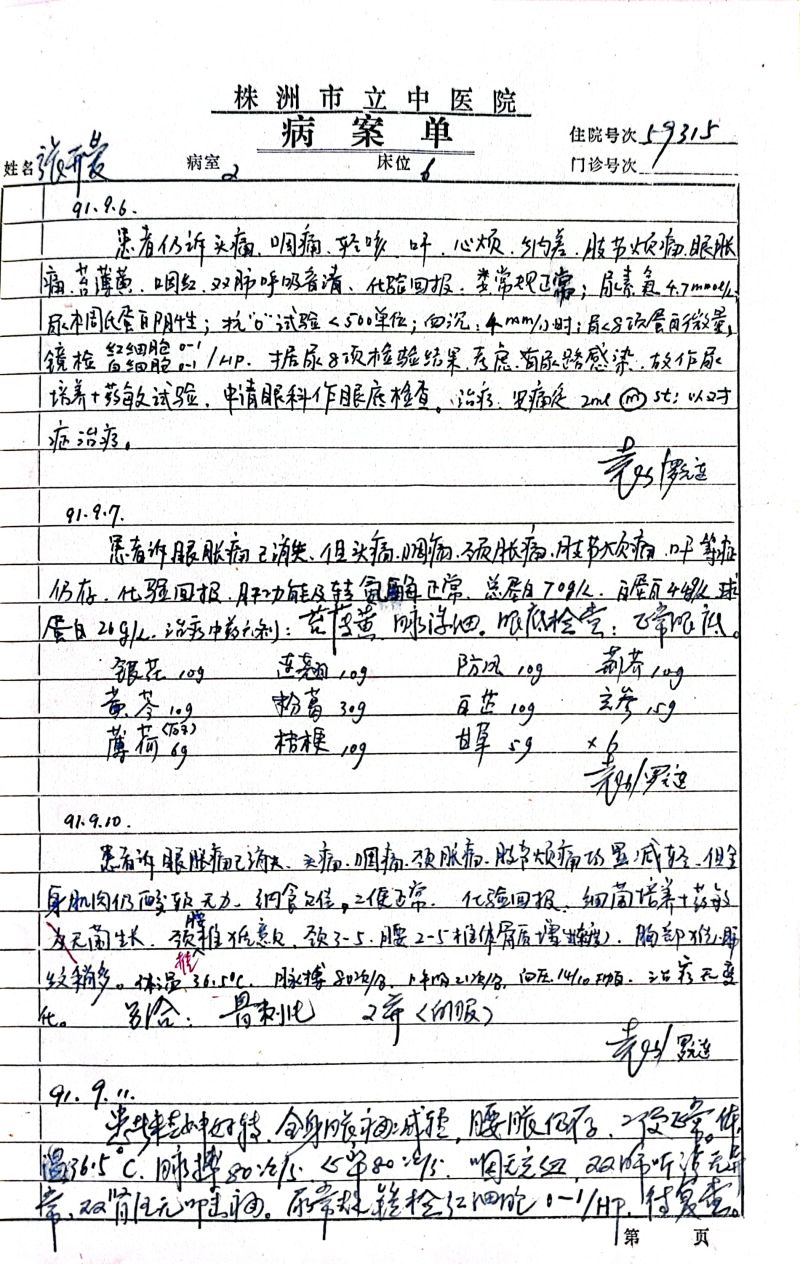 株洲市立中医院
病案单
住院号次 59315
姓名 张 病室 2 床位 6 门诊号次
91.9.6.
患者仍诉头痛、咽痛、轻咳、呕、心烦、纳差、肢节烦痛、眼胀
痛、苔薄黄、咽红、双肺呼吸音清、化验回报、粪常规正常；尿素氮 4.7mmol/L
尿本周氏蛋白阴性；抗"O"试验<500单位；血沉：4mm/小时；尿8项蛋白微量，
镜检 红细胞 0-1 白细胞 0-1 /HP. 据尿8项检验结果、考虑有尿路感染、故作尿
培养+药敏试验、申请眼科作眼底检查。治疗、安痛定 2ml m st; 以对
症治疗。
91.9.7.
患者诉眼胀痛已消失、但头痛、咽痛、颈胀痛、肢节烦痛、呕等症
仍存、化验回报、肝功能及转氨酶正常、总蛋白70g/L、白蛋白44g/L 球
蛋白26g/L、治疗中药六剂：苔薄黄、脉浮细。眼底检查：正常眼底。
银花10g 连翘10g 防风10g 荆芥10g
黄芩10g 粉葛30g 白芷10g 玄参15g
薄荷6g 桔梗10g 甘草5g ×6
91.9.10.
患者诉眼胀痛已消失、头痛、咽痛、颈胀痛、肢节烦痛均显减轻、但全
身肌肉仍酸软无力、纳食欠佳。二便正常、化验回报、细菌培养+药敏
为无菌生长、颈腰椎 颈3-5、腰2-5椎体骨质增生 胸部 肺
纹稍多。体温36.5℃、脉搏80次/分、呼吸21次/分、血压14/10 治疗无变
化。 骨刺 2 〈 服〉
91.9.11.
好转、全身胀痛减轻，腰胀仍存、二便正常。体
温36.5℃、脉搏80次/分、心率80次/分、咽无充血、双肺听诊无异
常、双肾区无叩击痛。尿常规镜检红细胞0-1/HP、待复查。
第 页